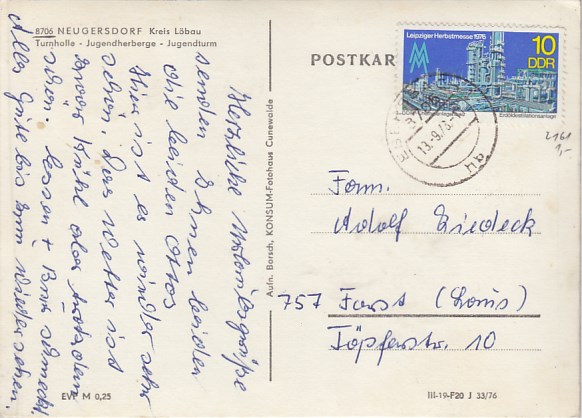 8706 NEUGERSDORF Kreis Löbau
Turnhalle - Jugendherberge - Jugendturm
Herzliche Urlaubsgrüße
senden Ihnen beiden
die beiden Ottos
Hier ist es wieder sehr
schön. Das Wetter ist
zwar kühl aber trotzdem
schön. Essen + Bier schmeckt
Alles Gute bis zum Wiedersehen.
EVP M 0,25
Aufn. Borsch, KONSUM-Fotohaus Cunewalde
POSTKAR
Leipziger Herbstmesse 1976
10
DDR
Erdöldestillationsanlage
2161
1,-
Fam.
Adolf Riedeck
757 Forst (Lausitz)
Töpferstr. 10
III-19-F20 J 33/76